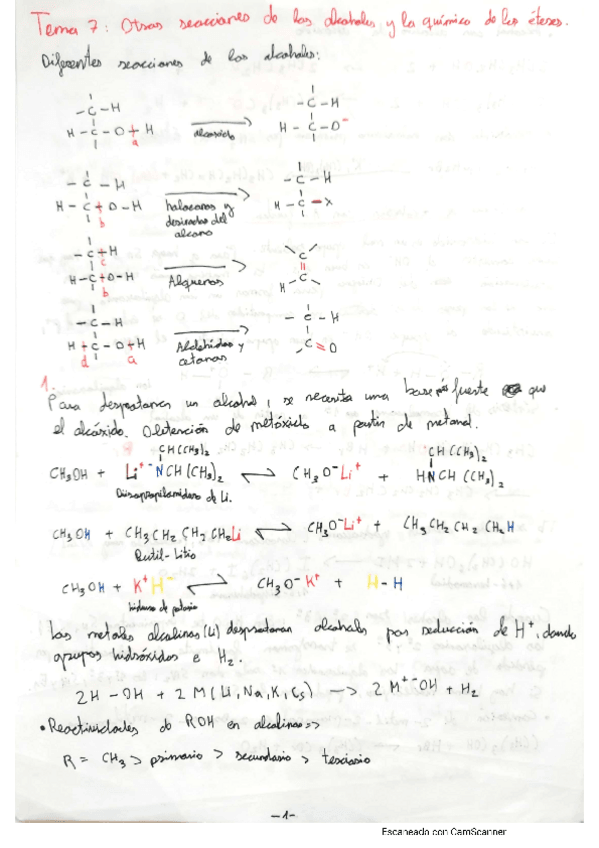 Tema 7: Otras reacciones de los alcoholes y la química de los éteres.
Diferentes reacciones de los alcoholes:
- C - H
H - C - O + H
a
alcóxido
- C - H
H - C - O⁻
- C - H
H - C + O - H
b
halocanos y
derivados del
alcano
- C - H
H - C - X
- C + H
c
H - C + O - H
b
Alquenos
C
=
H C
- C - H
H + C - O + H
d a
Aldehídos y
cetonas
- C - H
C = O
1.
Para desprotonar un alcohol, se necesita una base más fuerte que
el alcóxido. Obtención de metóxido a partir de metanol.
CH(CH₃)₂ CH(CH₃)₂
CH₃OH + Li⁺ ⁻NCH(CH₃)₂ ⇌ CH₃O⁻Li⁺ + HNCH(CH₃)₂
Diisopropilamiduro de Li.
CH₃OH + CH₃CH₂CH₂CH₂Li ⇌ CH₃O⁻Li⁺ + CH₃CH₂CH₂CH₂H
Butil-Litio
CH₃OH + K⁺H⁻ ⇌ CH₃O⁻K⁺ + H-H
hidruro de potasio
Los metales alcalinos (Li) desprotonan alcoholes por reducción de H⁺, dando
grupos hidróxidos e H₂.
2H-OH + 2M(Li, Na, K, Cs) → 2M⁺⁻OH + H₂
• Reactividades de ROH en alcalinos =>
R = CH₃ > primario > secundario > terciario
-1-
Escaneado con CamScanner